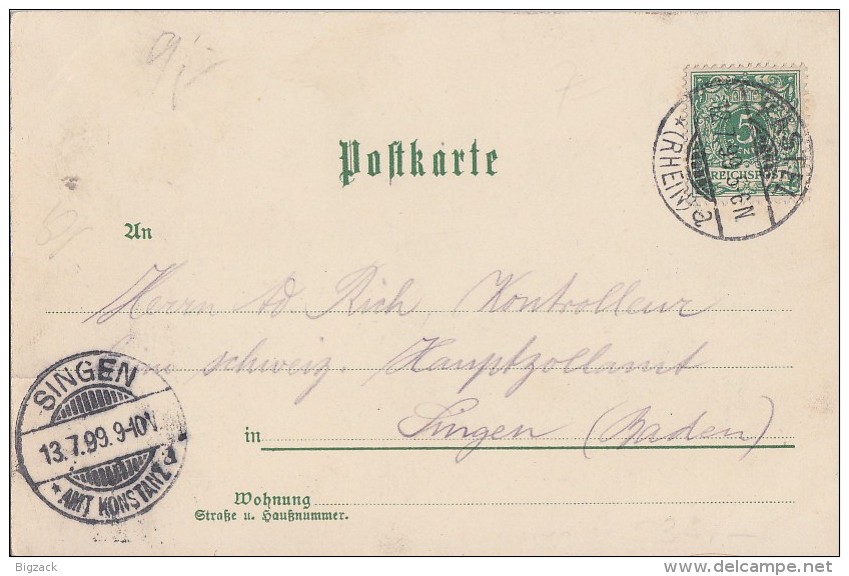 Postkarte
5
REICHSPOST
(RHEIN)
An
Herrn Ad. Rich, Kontrolleur
am schweiz. Hauptzollamt
in Singen (Baden)
SINGEN
13.7.99. 9-10V.
* AMT KONSTANZ
Wohnung
Straße u. Haußnummer.
Bigzack
www.delcampe.net